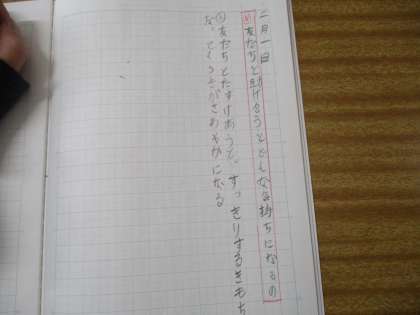 二月一日
め 友だちと助け合うとどんな気持ちになるの
友だちとたすけあうと、すっきりするきもち
なってくうきがさわやかになる